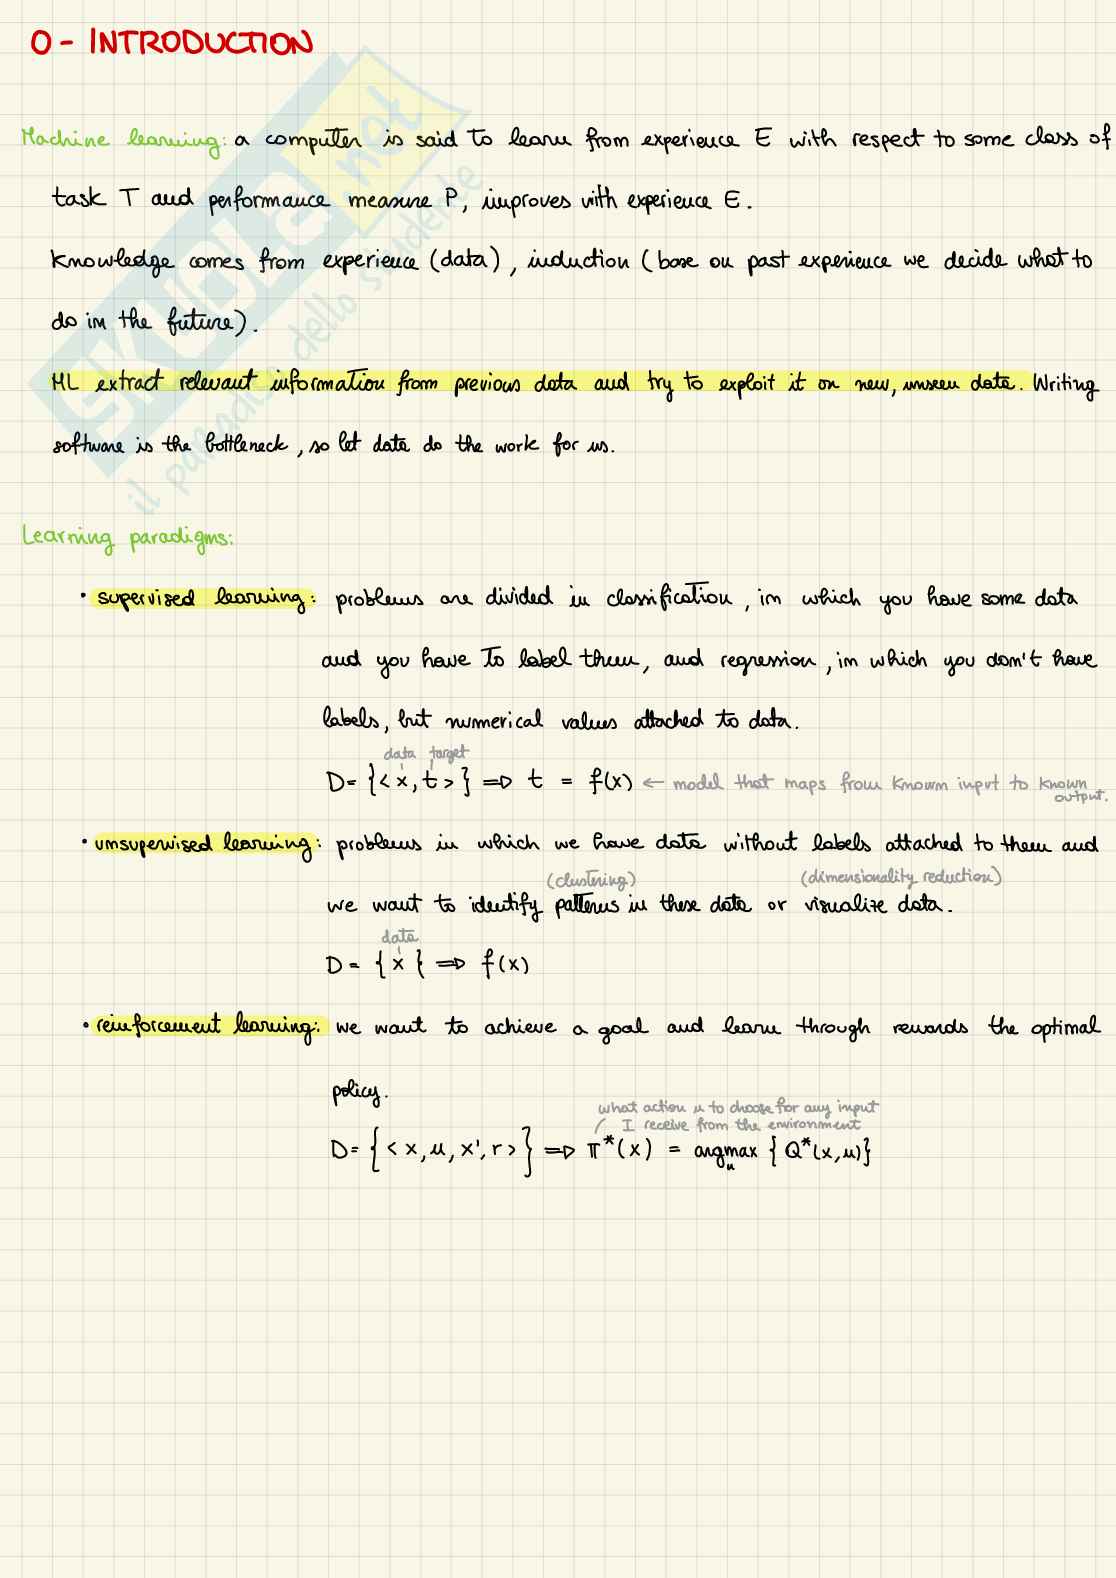 0 - INTRODUCTION
Machine learning: a computer is said to learn from experience E with respect to some class of
task T and performance measure P, improves with experience E.
Knowledge comes from experience (data), induction (base on past experience we decide what to
do in the future).
ML extract relevant information from previous data and try to exploit it on new, unseen data. Writing
software is the bottleneck, so let data do the work for us.
Learning paradigms:
• supervised learning: problems are divided in classification, in which you have some data
and you have to label them, and regression, in which you don't have
labels, but numerical values attached to data.
data target
D = {<x, t>} ⇒ t = f(x) ← model that maps from known input to known
output.
• unsupervised learning: problems in which we have data without labels attached to them and
(clustering) (dimensionality reduction)
we want to identify patterns in these data or visualize data.
data
D = {x} ⇒ f(x)
• reinforcement learning: we want to achieve a goal and learn through rewards the optimal
policy.
what action u to choose for any input
I receive from the environment
D = {<x, u, x', r>} ⇒ π*(x) = argmax {Q*(x, u)}
u
SKUOLA.net
il paradiso dello studente